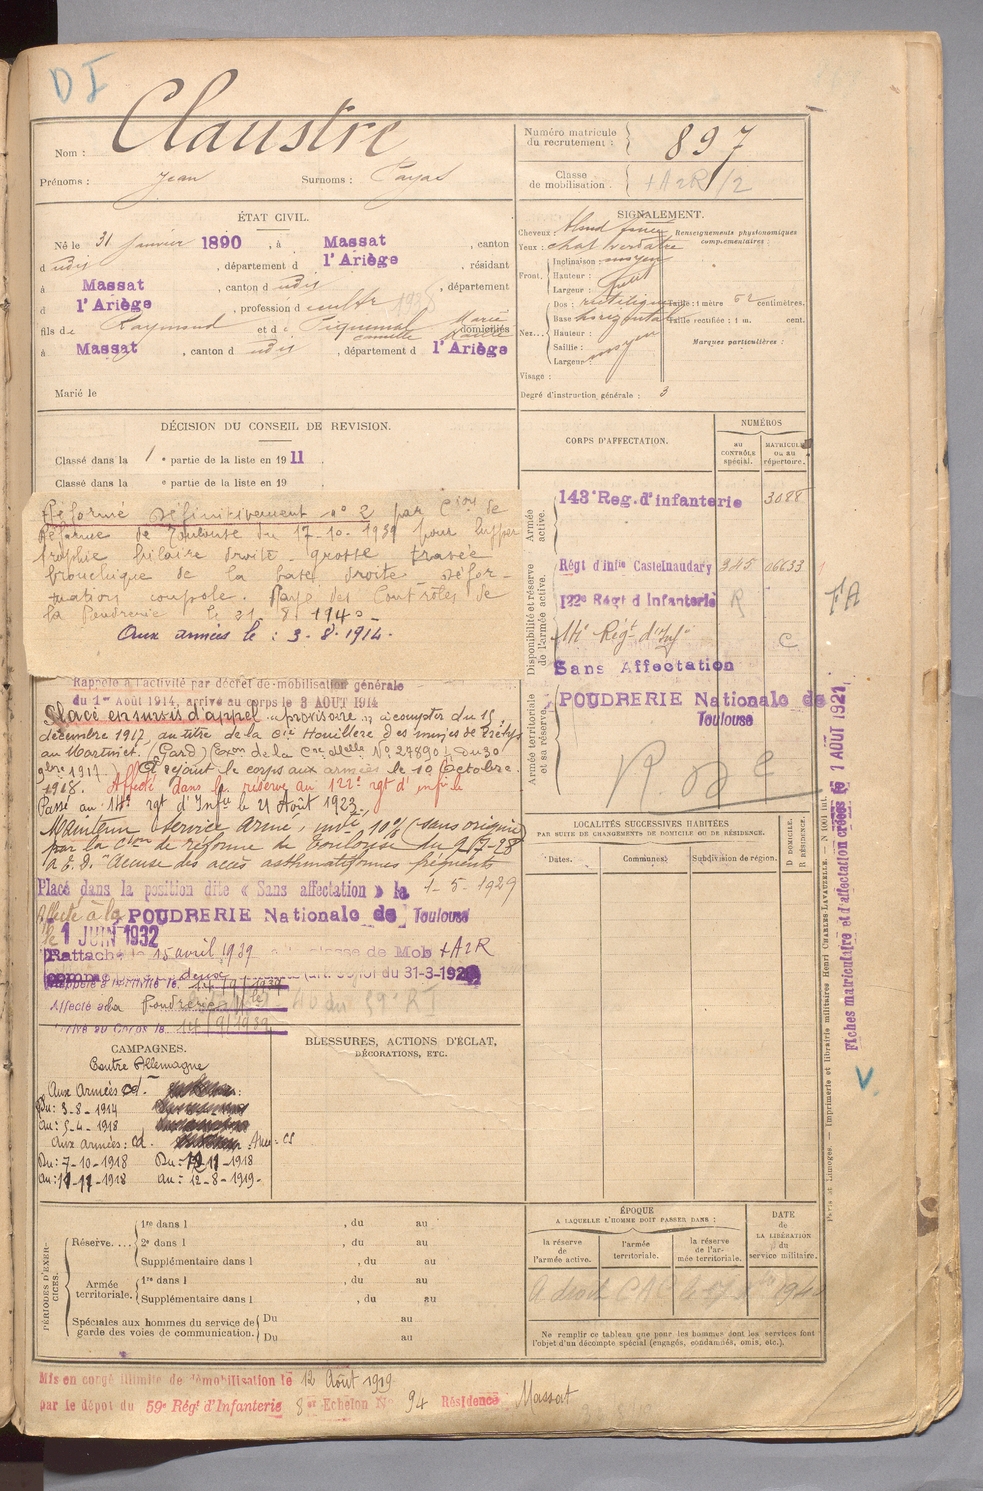 D I
Claustre
Nom :
Prénoms : Jean Surnoms : Payas
Numéro matricule du recrutement : 897
Classe de mobilisation. + A2R/2
ÉTAT CIVIL.
Né le 31 janvier 1890, à Massat, canton
d udit, département d l'Ariège, résidant
à Massat, canton d udit, département
d l'Ariège, profession d cultr
fils de Raymond et de Piquemal Marie
camille domiciliés
à Massat, canton d udit, département d l'Ariège
Marié le
SIGNALEMENT.
Cheveux : blond foncé
Yeux : chat verdatre
Renseignements physionomiques complémentaires :
Front. Inclinaison : moyen
Hauteur :
Largeur : petit
Nez... Dos : rectiligne
Base horizontale
Hauteur :
Saillie :
Largeur moyen
Taille : 1 mètre 62 centimètres.
Taille rectifiée : 1 m. cent.
Marques particulières :
Visage :
Degré d'instruction générale : 3
DÉCISION DU CONSEIL DE REVISION.
Classé dans la 1 e partie de la liste en 1911.
Classé dans la e partie de la liste en 19
Réformé définitivement n° 2 par Cion de
Réforme de Toulouse du 17-10-1939 pour hyper
trophie hilaire droite - grosse travée
bronchique de la base droite - défor-
mation coupole. Rayé des Contrôles de
la Poudrerie le 31-8-1940
Aux armées le : 3-8-1914.
Rappelé à l'activité par décret de mobilisation générale
du 1er Août 1914, arrivé au corps le 3 AOUT 1914
Placé en sursis d'appel provisoire à compter du 15
décembre 1917, au titre de la Cie Houillère des mines de
au Martinet. (Gard) (Exon de la Cre Melle N° 27890 du 30
9bre 1917) A rejoint le corps aux armées le 10 Octobre
1918. Affecté dans la réserve au 122e rgt d'infie le
Passé au 14e rgt d'Infie le 21 Août 1923.
Maintenu Service Armé, invté 10% (sans origine)
par la Cion de réforme de Toulouse du 9-7-28
"Accuse des accès asthmatiformes fréquents
Placé dans la position dite « Sans affectation » le 1-5-1929
Affecté à la POUDRERIE Nationale de Toulouse
le 1 JUIN 1932
Rattaché le 15 avril 1939 à la classe de Mob + A2R
deux (art. 58) loi du 31-3-1928
Rappelé à l'activité le 14/9/1939
Affecté à la Poudrerie Nle
Arrivé au Corps le 14/9/1939
CORPS D'AFFECTATION.
NUMÉROS
AU CONTRÔLE spécial.
MATRICULE ou au répertoire.
Armée active.
143e Reg. d'infanterie 3088
Disponibilité et réserve de l'armée active.
Régt d'infie Castelnaudary 345 06633
122e Régt d'Infanterie R
14e Régt d'Inf C
Sans Affectation
Armée territoriale et sa réserve.
POUDRERIE Nationale de
Toulouse
FA
LOCALITÉS SUCCESSIVES HABITÉES
PAR SUITE DE CHANGEMENTS DE DOMICILE OU DE RÉSIDENCE.
Dates. Communes. Subdivision de région. D DOMICILE. R RÉSIDENCE.
Fiches matriculaire et d'affectation créées le 1 AOUT 1921
V
Paris et Limoges. — Imprimerie et librairie militaires Henri CHARLES-LAVAUZELLE.
CAMPAGNES.
Contre Allemagne
Aux Armées cd.
Du : 3-8-1914
Au : 5-4-1918
Aux armées : cd. Aux : CS
Du : 7-10-1918 Du : 12-11-1918
Au : 11-11-1918 Au : 12-8-1919
BLESSURES, ACTIONS D'ÉCLAT,
DÉCORATIONS, ETC.
PÉRIODES D'EXERCICES.
Réserve.... 1re dans l , du au
2e dans l , du au
Supplémentaire dans l , du au
Armée territoriale. 1re dans l , du au
Supplémentaire dans l , du au
Spéciales aux hommes du service de garde des voies de communication. Du au
Du au
ÉPOQUE
A LAQUELLE L'HOMME DOIT PASSER DANS :
la réserve de l'armée active.
l'armée territoriale.
la réserve de l'armée territoriale.
DATE de LA LIBÉRATION du service militaire.
A droit CAC
Ne remplir ce tableau que pour les hommes dont les services font
l'objet d'un décompte spécial (engagés, condamnés, omis, etc.).
Mis en congé illimité de démobilisation le 12 Août 1919
par le dépôt du 59e Régt d'Infanterie 8e Echelon No 94 Résidence Massat